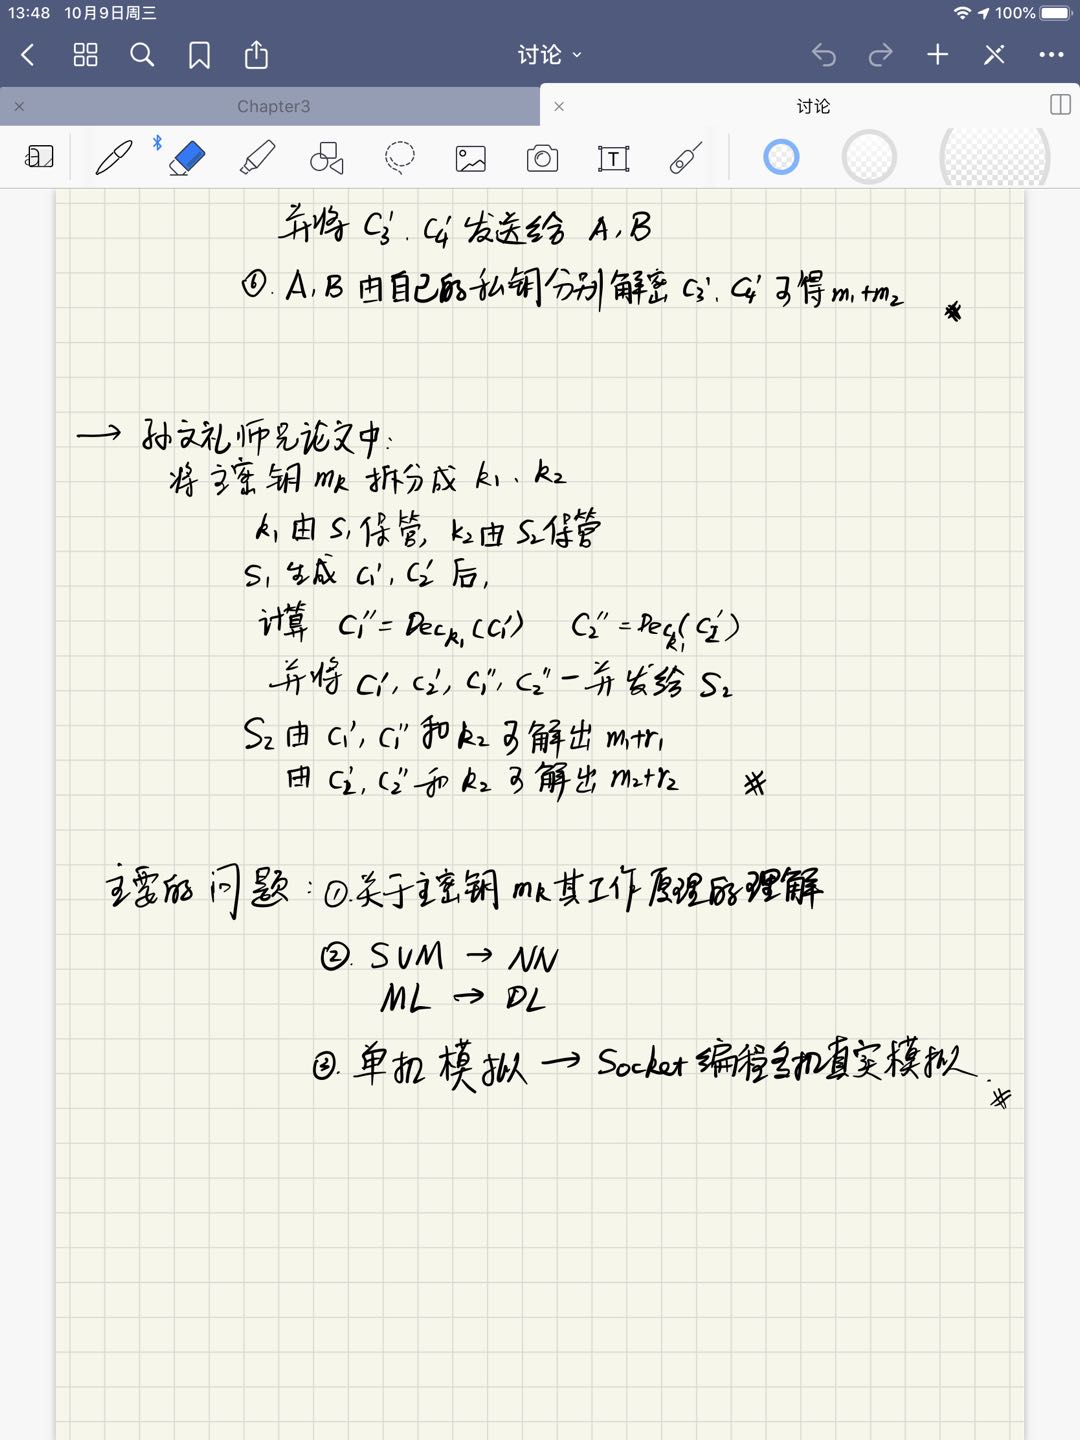 13:48 10月9日周三 100%
讨论
Chapter3
讨论
T
并将 C₃′、C₄′ 发送给 A,B
⑥. A,B 由自己的私钥分别解密 C₃′、C₄′ 可得 m₁+m₂ *
→ 孙文礼师兄论文中:
将主密钥 mk 拆分成 k₁、k₂
k₁ 由 S₁ 保管, k₂ 由 S₂ 保管
S₁ 生成 C₁′, C₂′ 后,
计算 C₁″ = Dec_k₁(C₁′) C₂″ = Dec_k₁(C₂′)
并将 C₁′, C₂′, C₁″, C₂″ 一并发给 S₂
S₂ 由 C₁′, C₁″ 和 k₂ 可解出 m₁+r₁
由 C₂′, C₂″ 和 k₂ 可解出 m₂+r₂ *
主要的问题: ①.关于主密钥 mk 其工作原理的理解
②. SVM → NN
ML → DL
③. 单机模拟 → Socket 编程多机真实模拟. *